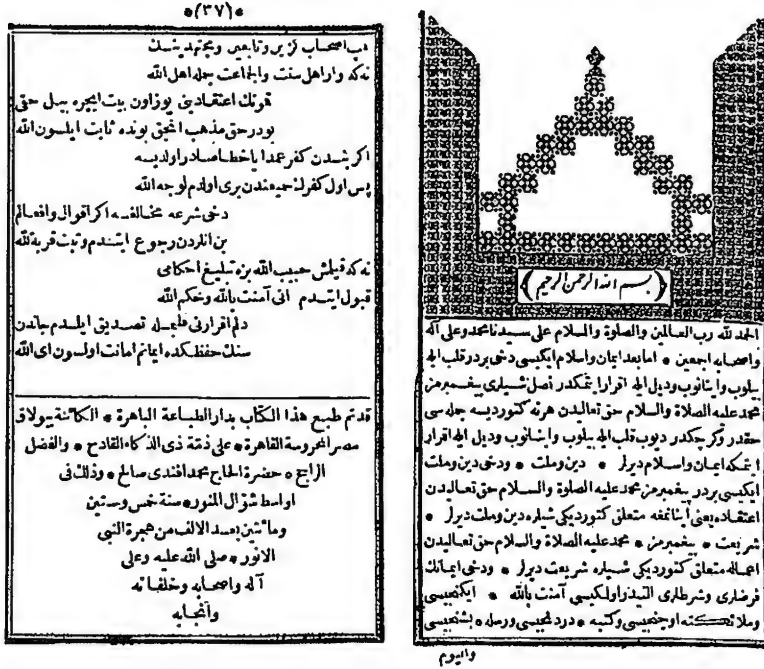 بسم الله الرحمن الرحيم
الحمد لله رب العالمين والصلوة والسلام على سيدنا محمد وعلى آله
واصحابه اجمعين * امابعد ايمان واسلام ايكيسى دخى بردر قلب ايله
بيلوب واينانوب وديل ايله اقرار ايتمكدر نصل شيلرى پيغمبرمز
محمد عليه الصلاة والسلام حق تعاليدن هرنه كتورديسه جمله سى
حقدر وكرچكدر ديوب قلب ايله بيلوب واينانوب وديل ايله اقرار
ايتمكه ايمان واسلام ديرلر * دين وملت * ودخى دين وملت
ايكيسى بردر پيغمبرمز محمد عليه الصلوة والسلام حق تعاليدن
اعتقاده يعنى اينانمغه متعلق كتورديكى شيلره دين وملت ديرلر *
شريعت * پيغمبرمز * محمد عليه الصلاة والسلام حق تعاليدن
اعماله متعلق كتورديكى شيلره شريعت ديرلر * ودخى ايمانك
فرضلرى وشرطلرى التيدر اولكيسى آمنت بالله * ايكنجيسى
وملائكته اوچنجيسى وكتبه * دردنجيسى ورسله * بشنجيسى
واليوم
*(٣٧)*
اصحاب وتابعين ومجتهدينك
نه كه وار اهل سنت والجاعت جمله اهل الله
قونك اعتقادينى يوز اون بيت ايچره بيل حقى
بودر حق مذهب انجق بونده ثابت ايلسون الله
اكر بندن كفر عمدا يا خطا صادر اولديسه
پس اول كفرلر جميعندن برى اولدم لوجه الله
دخى شرعه مخالفسه اكر اقوال وافعالم
بن انلردن رجوع ايتدم وتبت قربة لله
نه كه قيلمش حبيب الله بزه تبليغ احكامى
قبول ايتدم انى آمنت بالله وحكم الله
دلم اقرارنى قلبمله تصديق ايلدم جاندن
سنك حفظكده ايمانم امانت اولسون اى الله
قدتم طبع هذا الكتاب بدار الطباعة الباهرة * الكائنة ببولاق
مصر المحروسة القاهرة * على ذمة ذى الذكاء القادح * والفضل
الراجح * حضرة الحاج محمد افندى صالح * وذلك فى
اواسط شوال المنور * سنة خمس وستين
ومائتين بعد الالف من هجرة النبى
الانور * صلى الله عليه وعلى
آله واصحابه وخلفائه
وانجابه